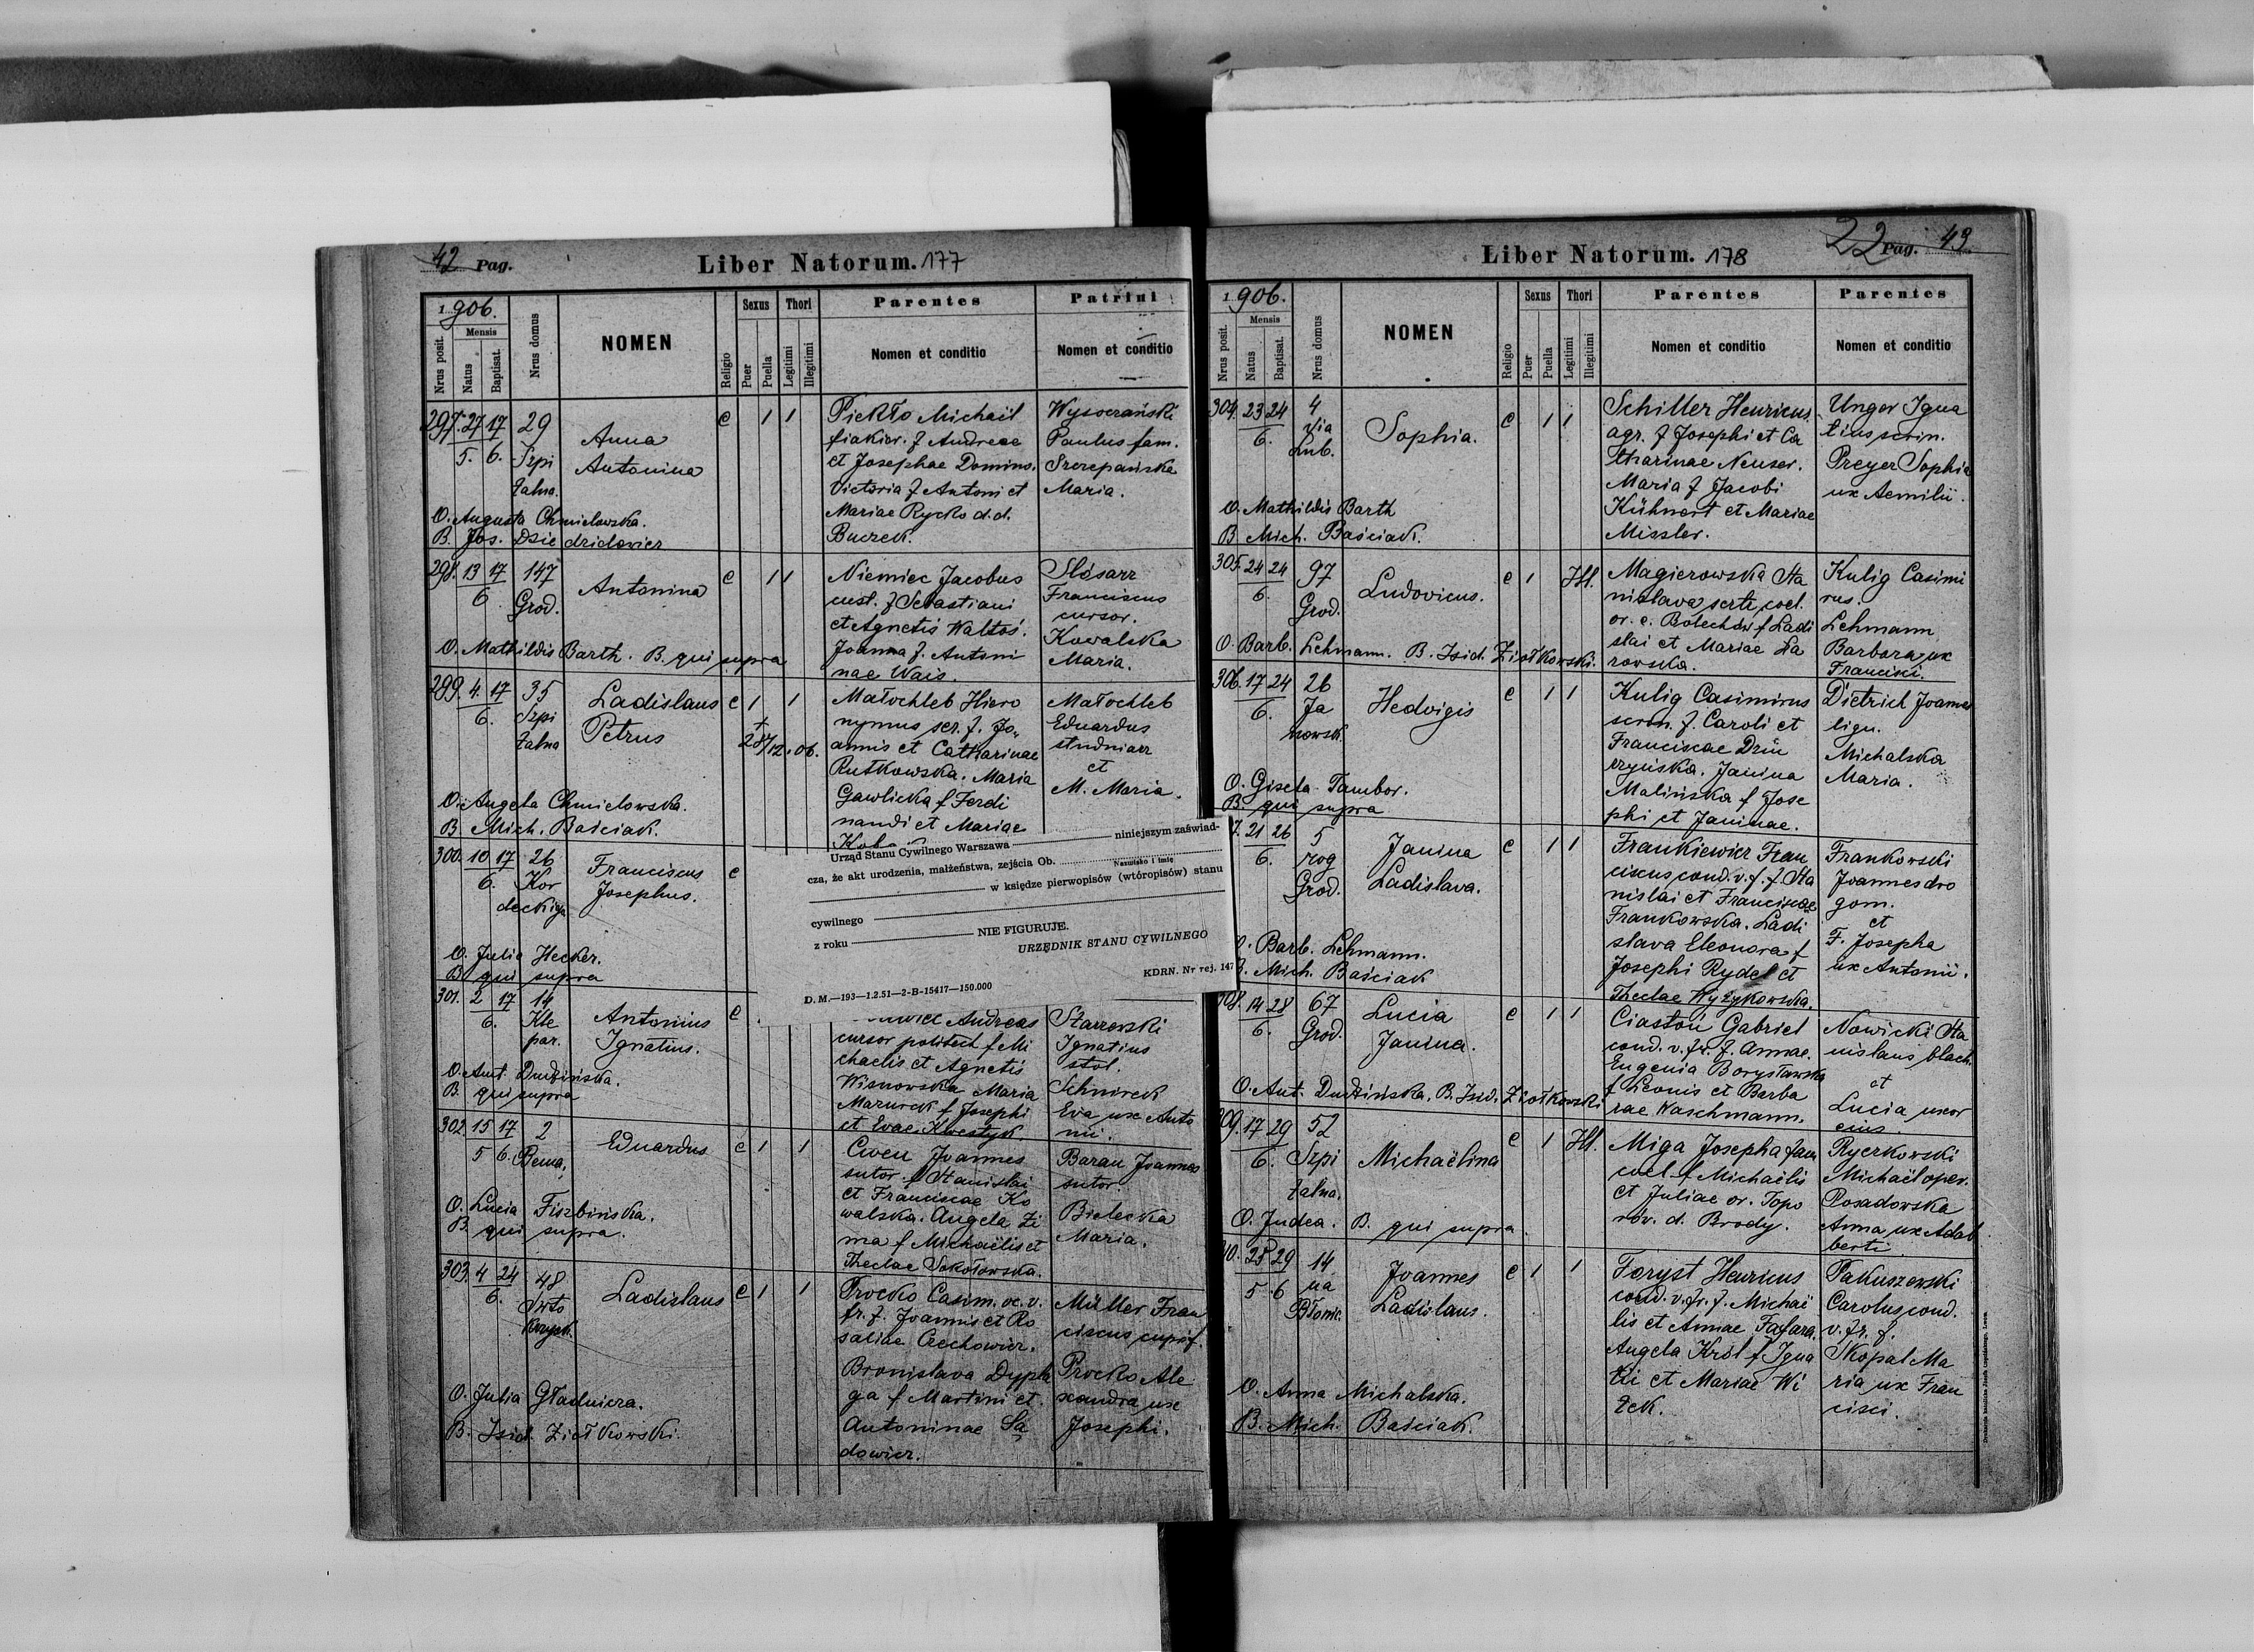 42 Pag.
Liber Natorum. 177
1906.
Nrus posit.
Mensis
Natus
Baptisat.
Nrus domus
NOMEN
Religio
Sexus
Puer
Puella
Thori
Legitimi
Illegitimi
Parentes
Nomen et conditio
Patrini
Nomen et conditio
297. 27 17 29
5. 6. Szpi
talna.
Anna
Antonina
c 1 1
Piekło Michaël
fiakier. f Andreae
et Josephae Domino.
Victoria f Antoni et
Mariae Rycko d.d.
Buczek.
Wysoczański
Paulus fam.
Szczepańska
Maria.
O. Augusta Chmielowska.
B. Jos. Dziedzielewicz
298. 13 17 147
6 Grod.
Antonina
c 1 1
Niemiec Jacobus
cust. f Sebastiani
et Agnetis Waltoś.
Joanna f. Antoni
nae Wais.
Ślósarz
Franciscus
cursor.
Kowalska
Maria.
O. Mathildis Barth. B. qui supra
299. 4. 17 35
6. Szpi
talna
Ladislaus
Petrus
c 1 1
+
28/12.06.
Małochleb Hiero
nymus ser. f. Jo„
annis et Catharinae
Rutkowska. Maria
Gawlicka f Ferdi
nandi et Mariae
Małochleb
Eduardus
studniarz
et
M. Maria.
O. Angela Chmielowska.
B Mich. Baściak.
300. 10 17 26
6. Kor
deckiego
Franciscus
Josephus.
c
O. Julia Hecker.
B qui supra
Urząd Stanu Cywilnego Warszawa niniejszym zaświad-
cza, że akt urodzenia, małżeństwa, zejścia Ob.
Nazwisko i imię
w księdze pierwopisów (wtóropisów) stanu
cywilnego
z roku NIE FIGURUJE.
URZĘDNIK STANU CYWILNEGO
KDRN. Nr rej. 147
D. M.—193—1.2.51—2-B-15417—150.000
301. 2 17 14
6. Kle
par.
Antonius
Ignatius.
c
Andreas
cursor politech f Mi
chaelis et Agnetis
Wisnowska Maria
Mazurek f Josephi
et Evae Kwestyk.
Starzewski
Ignatius
stol.
Schnirek
Eva ux Anto
nii.
O. Ant. Dudzińska.
B. qui supra
302. 15 17 2
5 6. Bema,
Eduardus
c 1 1
Cwen Joannes
sutor f Stanislai
et Franciscae Ko
walska. Angela Zi
ma f Michaëlis et
Theclae Sokołowska.
Baran Joannes
sutor.
Bielecka
Maria.
O. Lucia Fiszbińska.
B. qui supra.
303. 4 24 48
6. Śrto
krzysk.
Ladislaus
c 1 1
Procko Casim. oc. v.
fr. f. Joannis et Ro
saliae Czechowicz.
Bronislava Dypta
ga f Martini et
Antoninae Sa
dowicz.
Müller Fran
ciscus cuprif.
Procko Ale
xandra ux
Josephi.
O. Julia Gładnicza.
B. Isid. Ziółkowski.
22 Pag. 43
Liber Natorum. 178
1906.
Nrus posit.
Mensis
Natus
Baptisat.
Nrus domus
NOMEN
Religio
Sexus
Puer
Puella
Thori
Legitimi
Illegitimi
Parentes
Nomen et conditio
Parentes
Nomen et conditio
304. 23 24 4
6. via
Lub.
Sophia.
c 1 1
Schiller Henricus
agr. f Josephi et Ca
tharinae Neuser.
Maria f Jacobi
Kühnert et Mariae
Missler.
Unger Igna
tius scrin.
Preyer Sophia
ux Aemilii.
O. Mathildis Barth
B Mich. Baściak.
305. 24 24 97
6. Grod.
Ludovicus.
c 1 Ill.
Magierowska Sta
nislava serta coel.
or. e. Bolechów f Ladi
slai et Mariae La
rowska.
Kulig Casimi
rus.
Lehmann
Barbara ux
Francisci.
O. Barb. Lehmann. B. Isid. Ziółkowski.
306. 17 24 26
6. Ja
nowsk.
Hedvigis
c 1 1
Kulig Casimirus
scrin. f. Caroli et
Franciscae Dziu
rzyńska. Janina
Malińska f Jose
phi et Janinae.
Dietrich Joannes
lign.
Michalska
Maria.
O. Gisela Tambor.
B. qui supra
7. 21 26 5
6. rog
Grod.
Janina
Ladislava.
c 1 1
Frankiewicz Fran
ciscus cond. v. f. f Sta
nislai et Franciscae
Frankowska. Ladi
slava Eleonora f
Josephi Rydel et
Theclae Wyżykowska.
Frankowski
Joannes dro
gom.
et
F. Josepha
ux Antonii.
O. Barb. Lehmann.
B. Mich. Baściak
08. 14 28 67
6. Grod.
Lucia
Janina.
c 1 1
Ciastoń Gabriel
cond. v. fr. f. Annae.
Eugenia Borysławska
f Leonis et Barba
rae Waschmann.
Nowicki Sta
nislaus blach.
et
Lucia uxor
eius.
O. Ant. Dudzińska. B. Isid. Ziółkowski
09. 17 29 52
6. Szpi
talna.
Michaëlina
c 1 Ill.
Miga Josepha fam
coel. f Michaëlis
et Juliae or. Topo
rów. d. Brody.
Rycrkowski
Michaël oper.
Posadowska
Anna ux Adal
berti
O. Judea. B. qui supra.
10. 25 29 14
5 6 na
Błonie.
Joannes
Ladislaus.
c 1 1
Foryst Henricus
cond. v. fr. f. Michaë
lis et Annae Fafara.
Angela Król f Igna
tii et Mariae Wi
lzek.
Pakuszewski
Carolus cond.
v. fr. f.
Skopal Ma
ria ux Fran
cisci.
O. Anna Michalska.
B. Mich. Baściak.